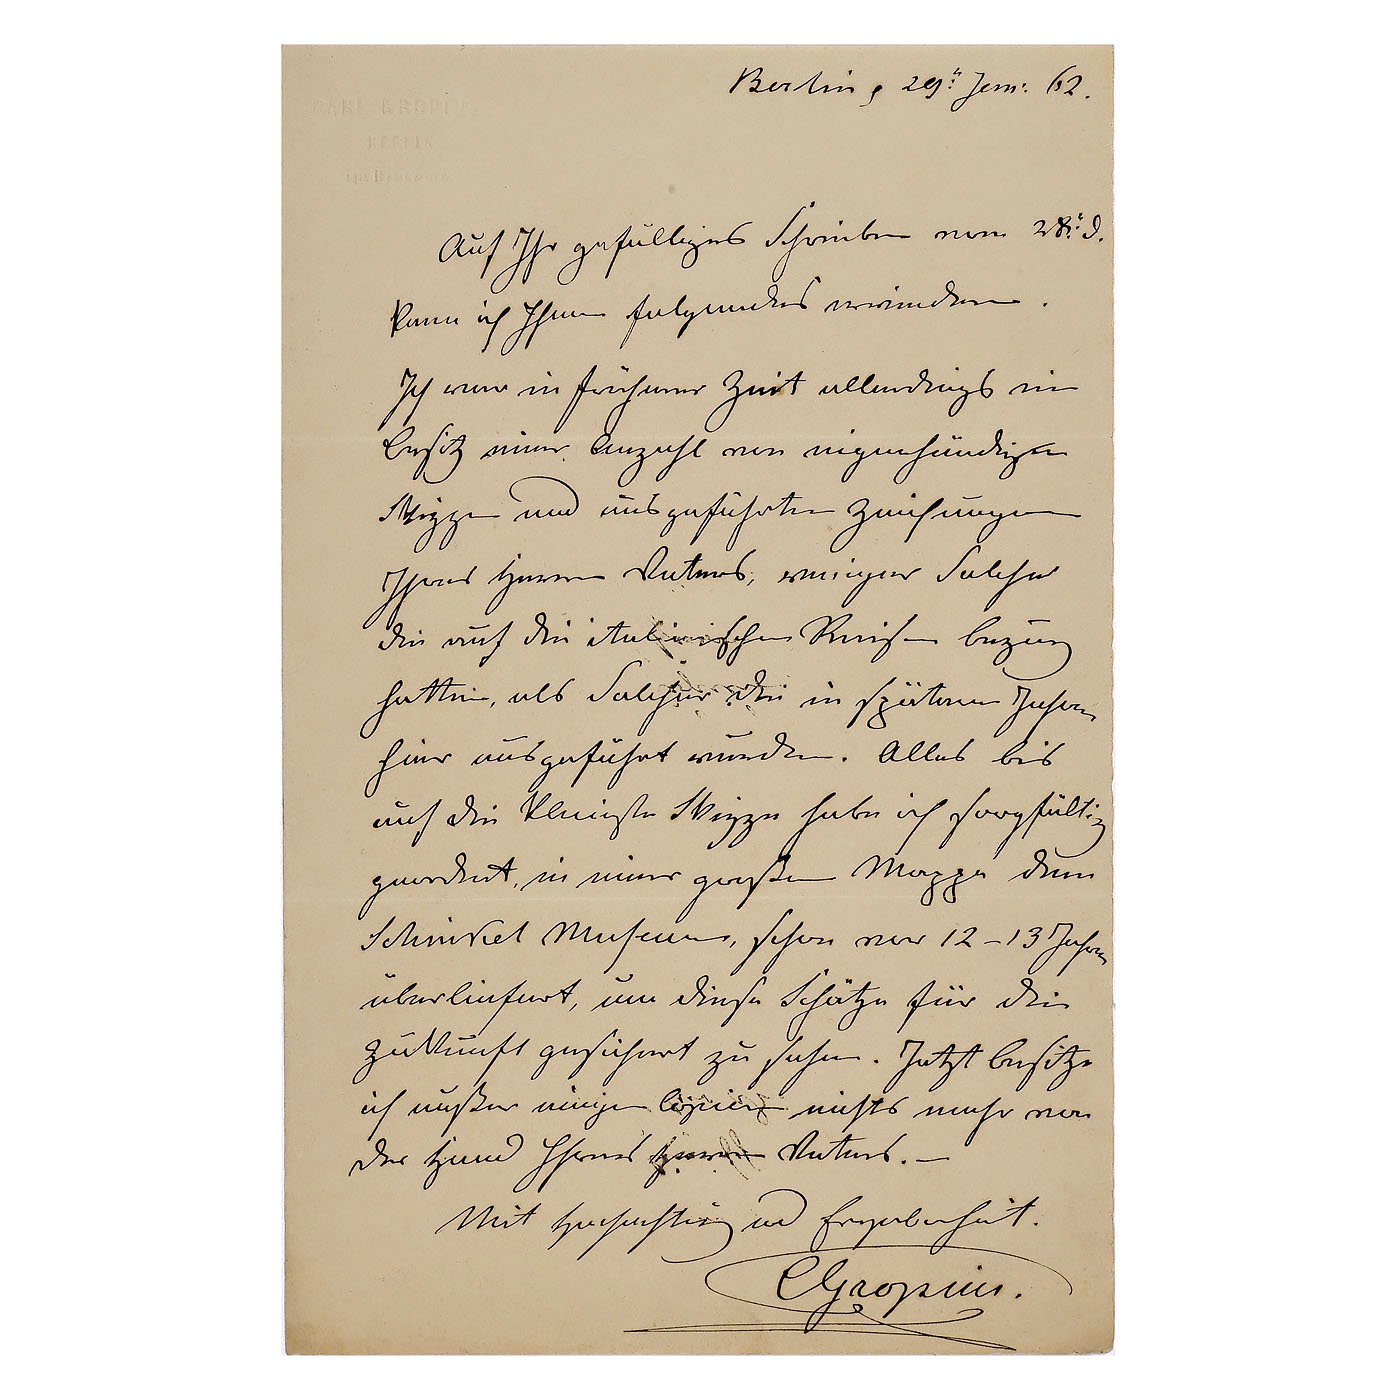 CARL GROPIUS
BERLIN
Berlin, 29t Jan: 62.
Auf Ihr gefälliges Schreiben vom 28t d.
kann ich Ihnen folgendes erwiedern.
Ich war in früherer Zeit allerdings im
Besitz einer Anzahl von eigenhändigen
Skizzen und ausgeführten Zeichnungen
Ihres Herrn Vaters, weniger Solcher
die auf die italienischen Reisen bezug
hatten, als Solcher die in spätern Jahren
hier ausgeführt wurden. Alles bis
auf die kleinste Skizze habe ich sorgfältig
geordnet, in einer großen Mappe dem
Schinkel Museum, schon vor 12–13 Jahren
überliefert, um diese Schätze für die
Zukunft gesichert zu sehen. Jetzt besitze
ich außer einigen Copien nichts mehr von
der Hand Ihres Herrn Vaters. —
Mit Hochachtung und Ergebenheit.
CGropius.